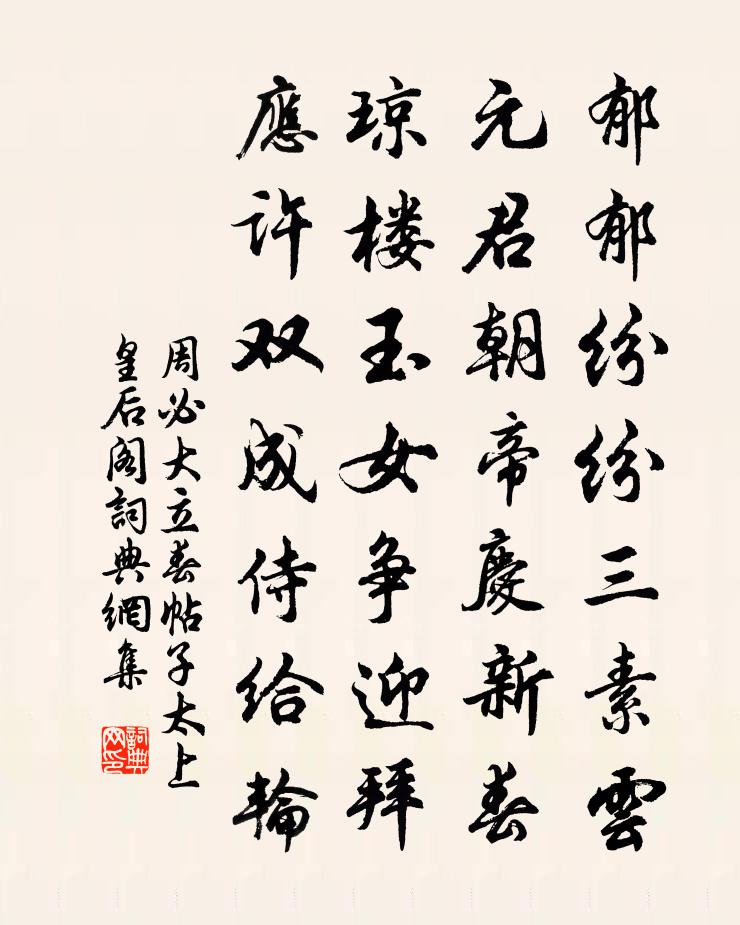 郁郁纷纷三素雲
元君朝帝慶新春
琼楼玉女争迎拜
應许双成侍给輪
周必大立春帖子太上
皇后阁詞典網集
詞典网印